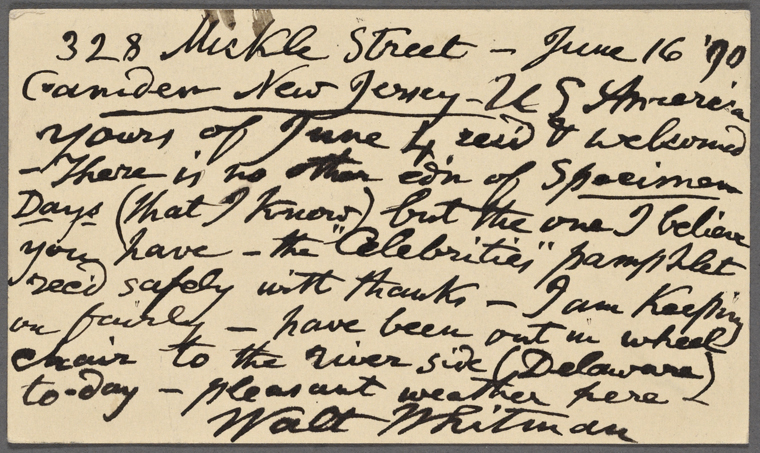 328 Mickle Street — June 16 '90
Camden New Jersey — U S America
yours of June 4 rec'd & welcomed
— There is no other ed'n of Specimen
Days (that I know) but the one I believe
you have — the "Celebrities" pamphlet
rec'd safely with thanks — I am keeping
on fairly — have been out in wheel
chair to the river side (Delaware)
to-day — pleasant weather here —
Walt Whitman